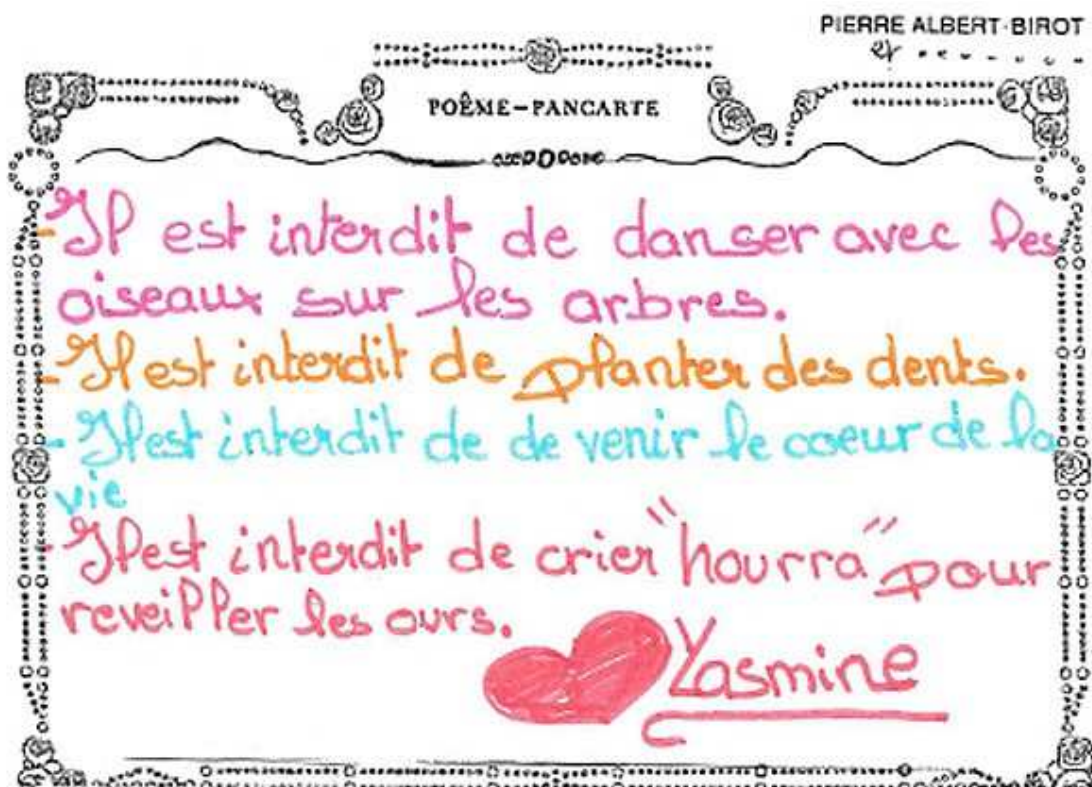 PIERRE ALBERT-BIROT
et
POÊME-PANCARTE
- Il est interdit de danser avec les
oiseaux sur les arbres.
- Il est interdit de planter des dents.
- Il est interdit de de venir le coeur de la
vie
- Il est interdit de crier "hourra" pour
reveiller les ours.
Yasmine